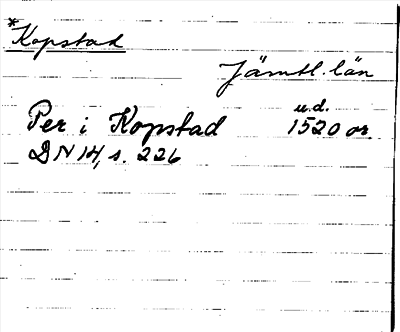 *Kopstad
Jämtl. län
Per i Kopstad u.d. 1520 or
DN 14, s. 226